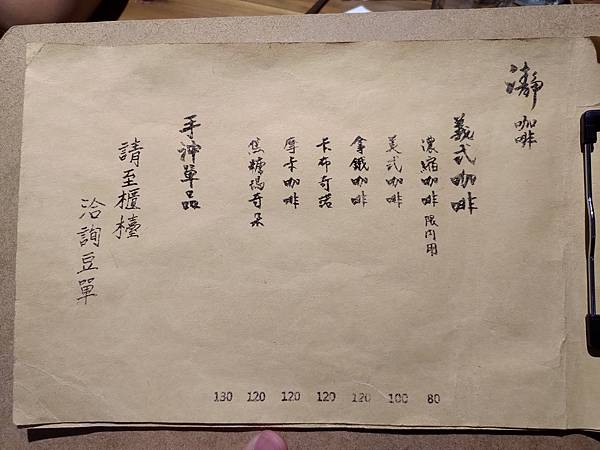 瀞咖啡
義式咖啡
濃縮咖啡 限內用 80
美式咖啡 100
拿鐵咖啡 120
卡布奇諾 120
摩卡咖啡 120
焦糖瑪奇朵 120
手沖單品 130
請至櫃檯
洽詢豆單